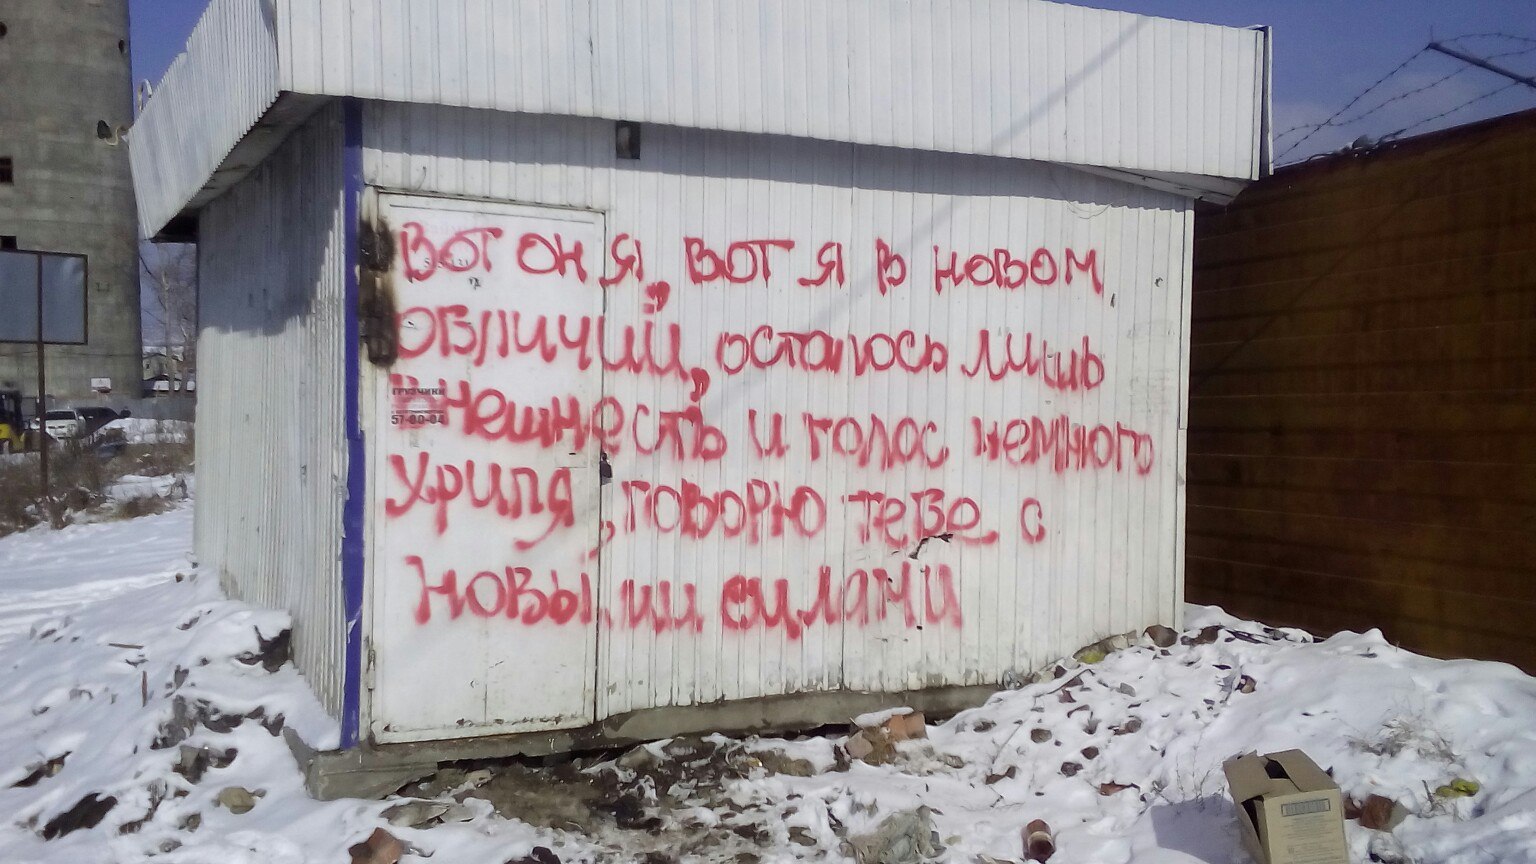 Вот он я, вот я в новом
обличии, осталось лишь
внешность и голос немного
хрипя, говорю тебе с
новыми силами
ГРУЗЧИКИ
57-80-04